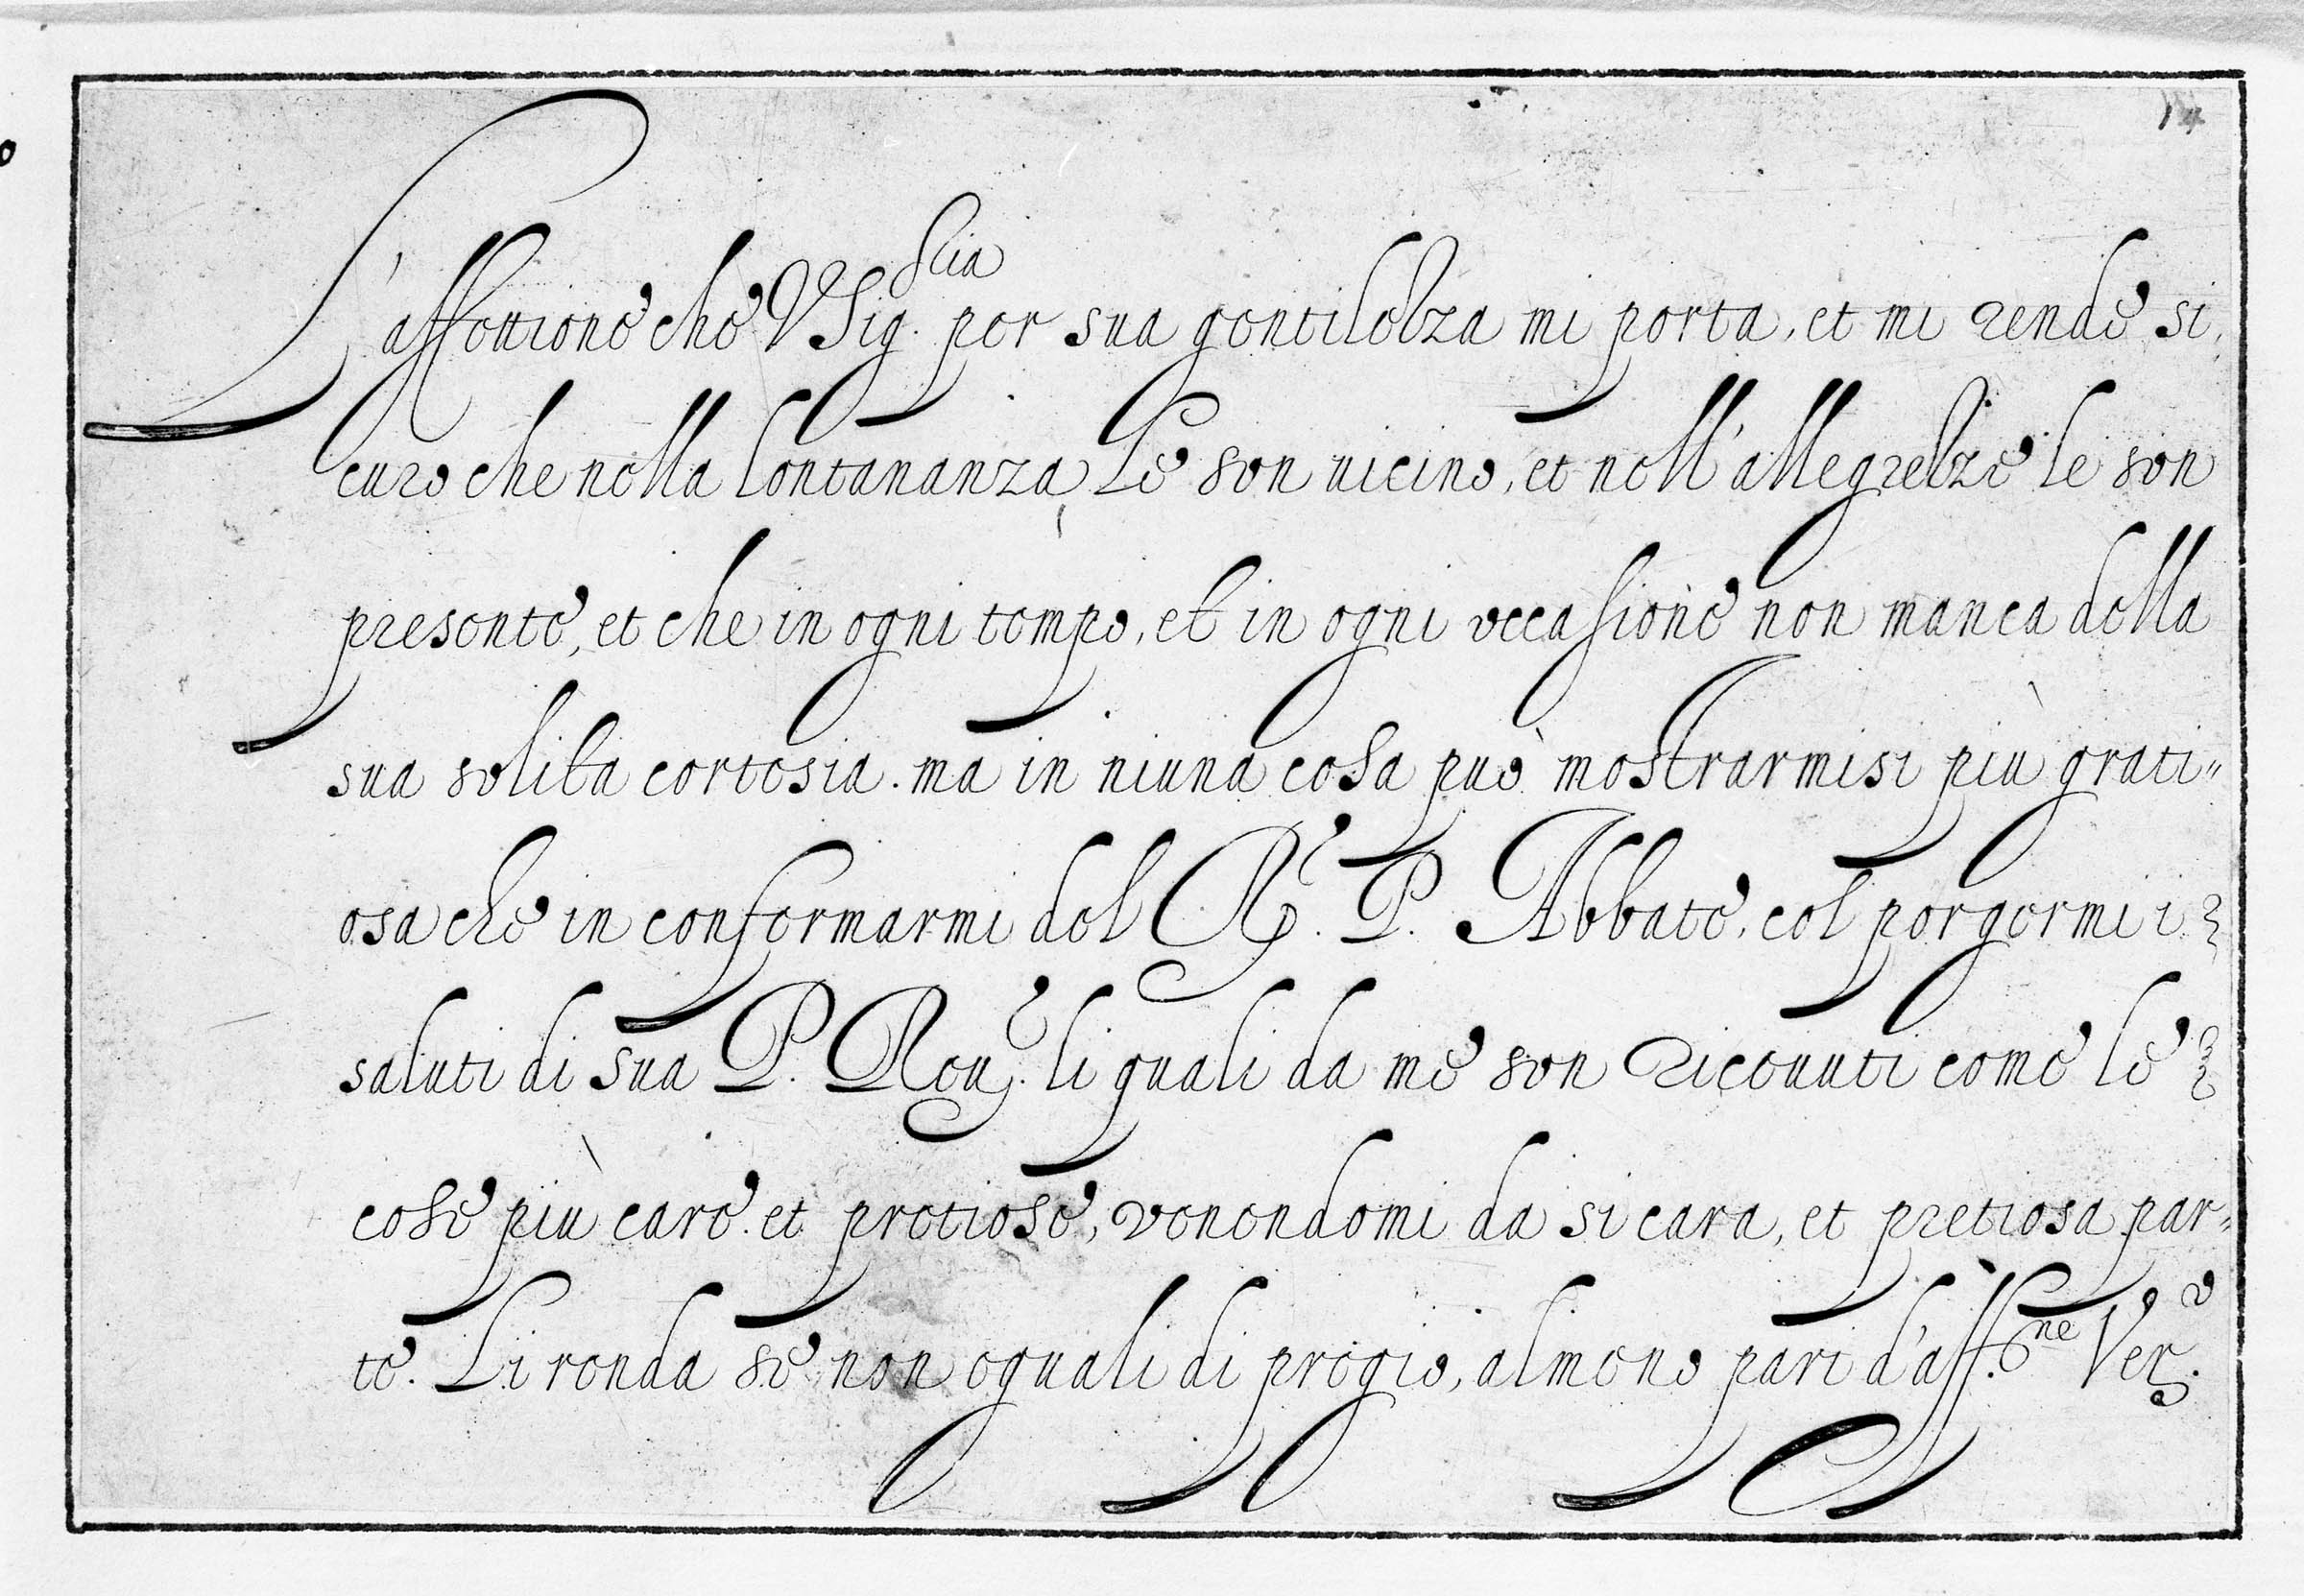 14
L'affettione che VSig.ria per sua gentilezza mi porta, et mi rende si,
curo che nella lontananza Le son uicino, et nell'allegrezze le son
presente, et che in ogni tempo, et in ogni occasione non manca della
sua solita cortesia. ma in niuna cosa può mostrarmisi più grati=
osa che in confermarmi del R.º P. Abbate, col porgermi i
saluti di sua P. Reu. li quali da me son riceuuti come le
cose più care et pretiose, venendomi da si cara, et pretiosa par=
te. Li renda se non eguali di pregio, almeno pari d'aff.ne Ver.º